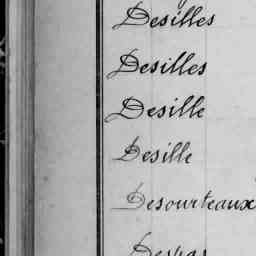 Desilles
Desilles
Desille
Desille
Desourteaux